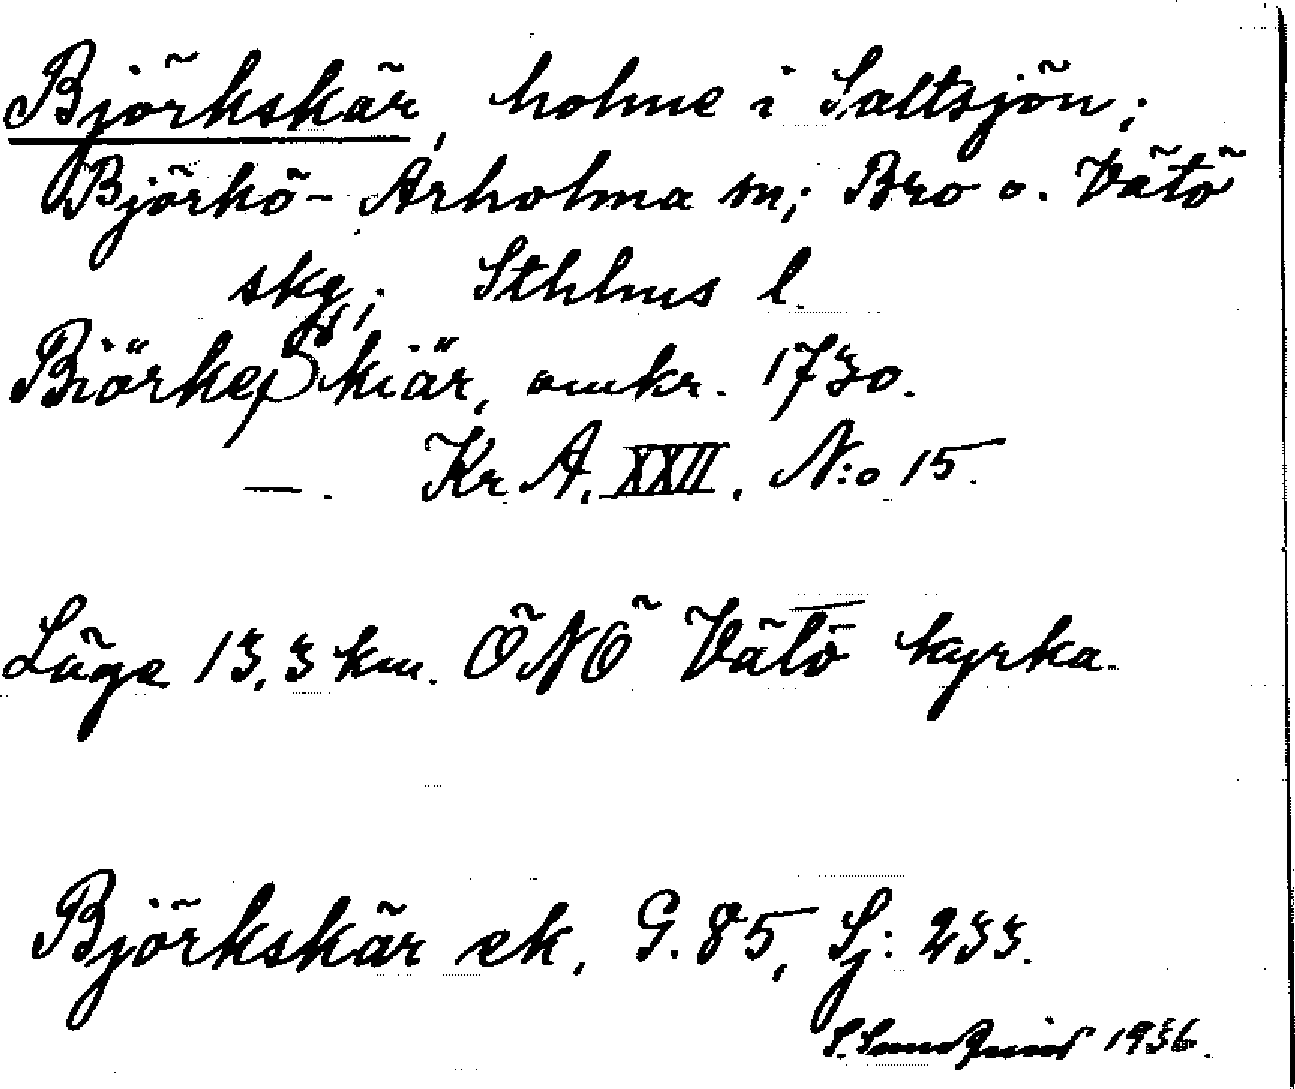 Björkskär, holme i Saltsjön;
Björkö-Arholma sn; Bro o. Vätö
skg; Sthlms l.
BiörkeSkiär, omkr. 1730.
—. KrA. XXII. N:o 15.
Läge 13,3 km. ÖNÖ Vätö kyrka.
Björkskär ek. G. 85, Sj: 233.
1936.